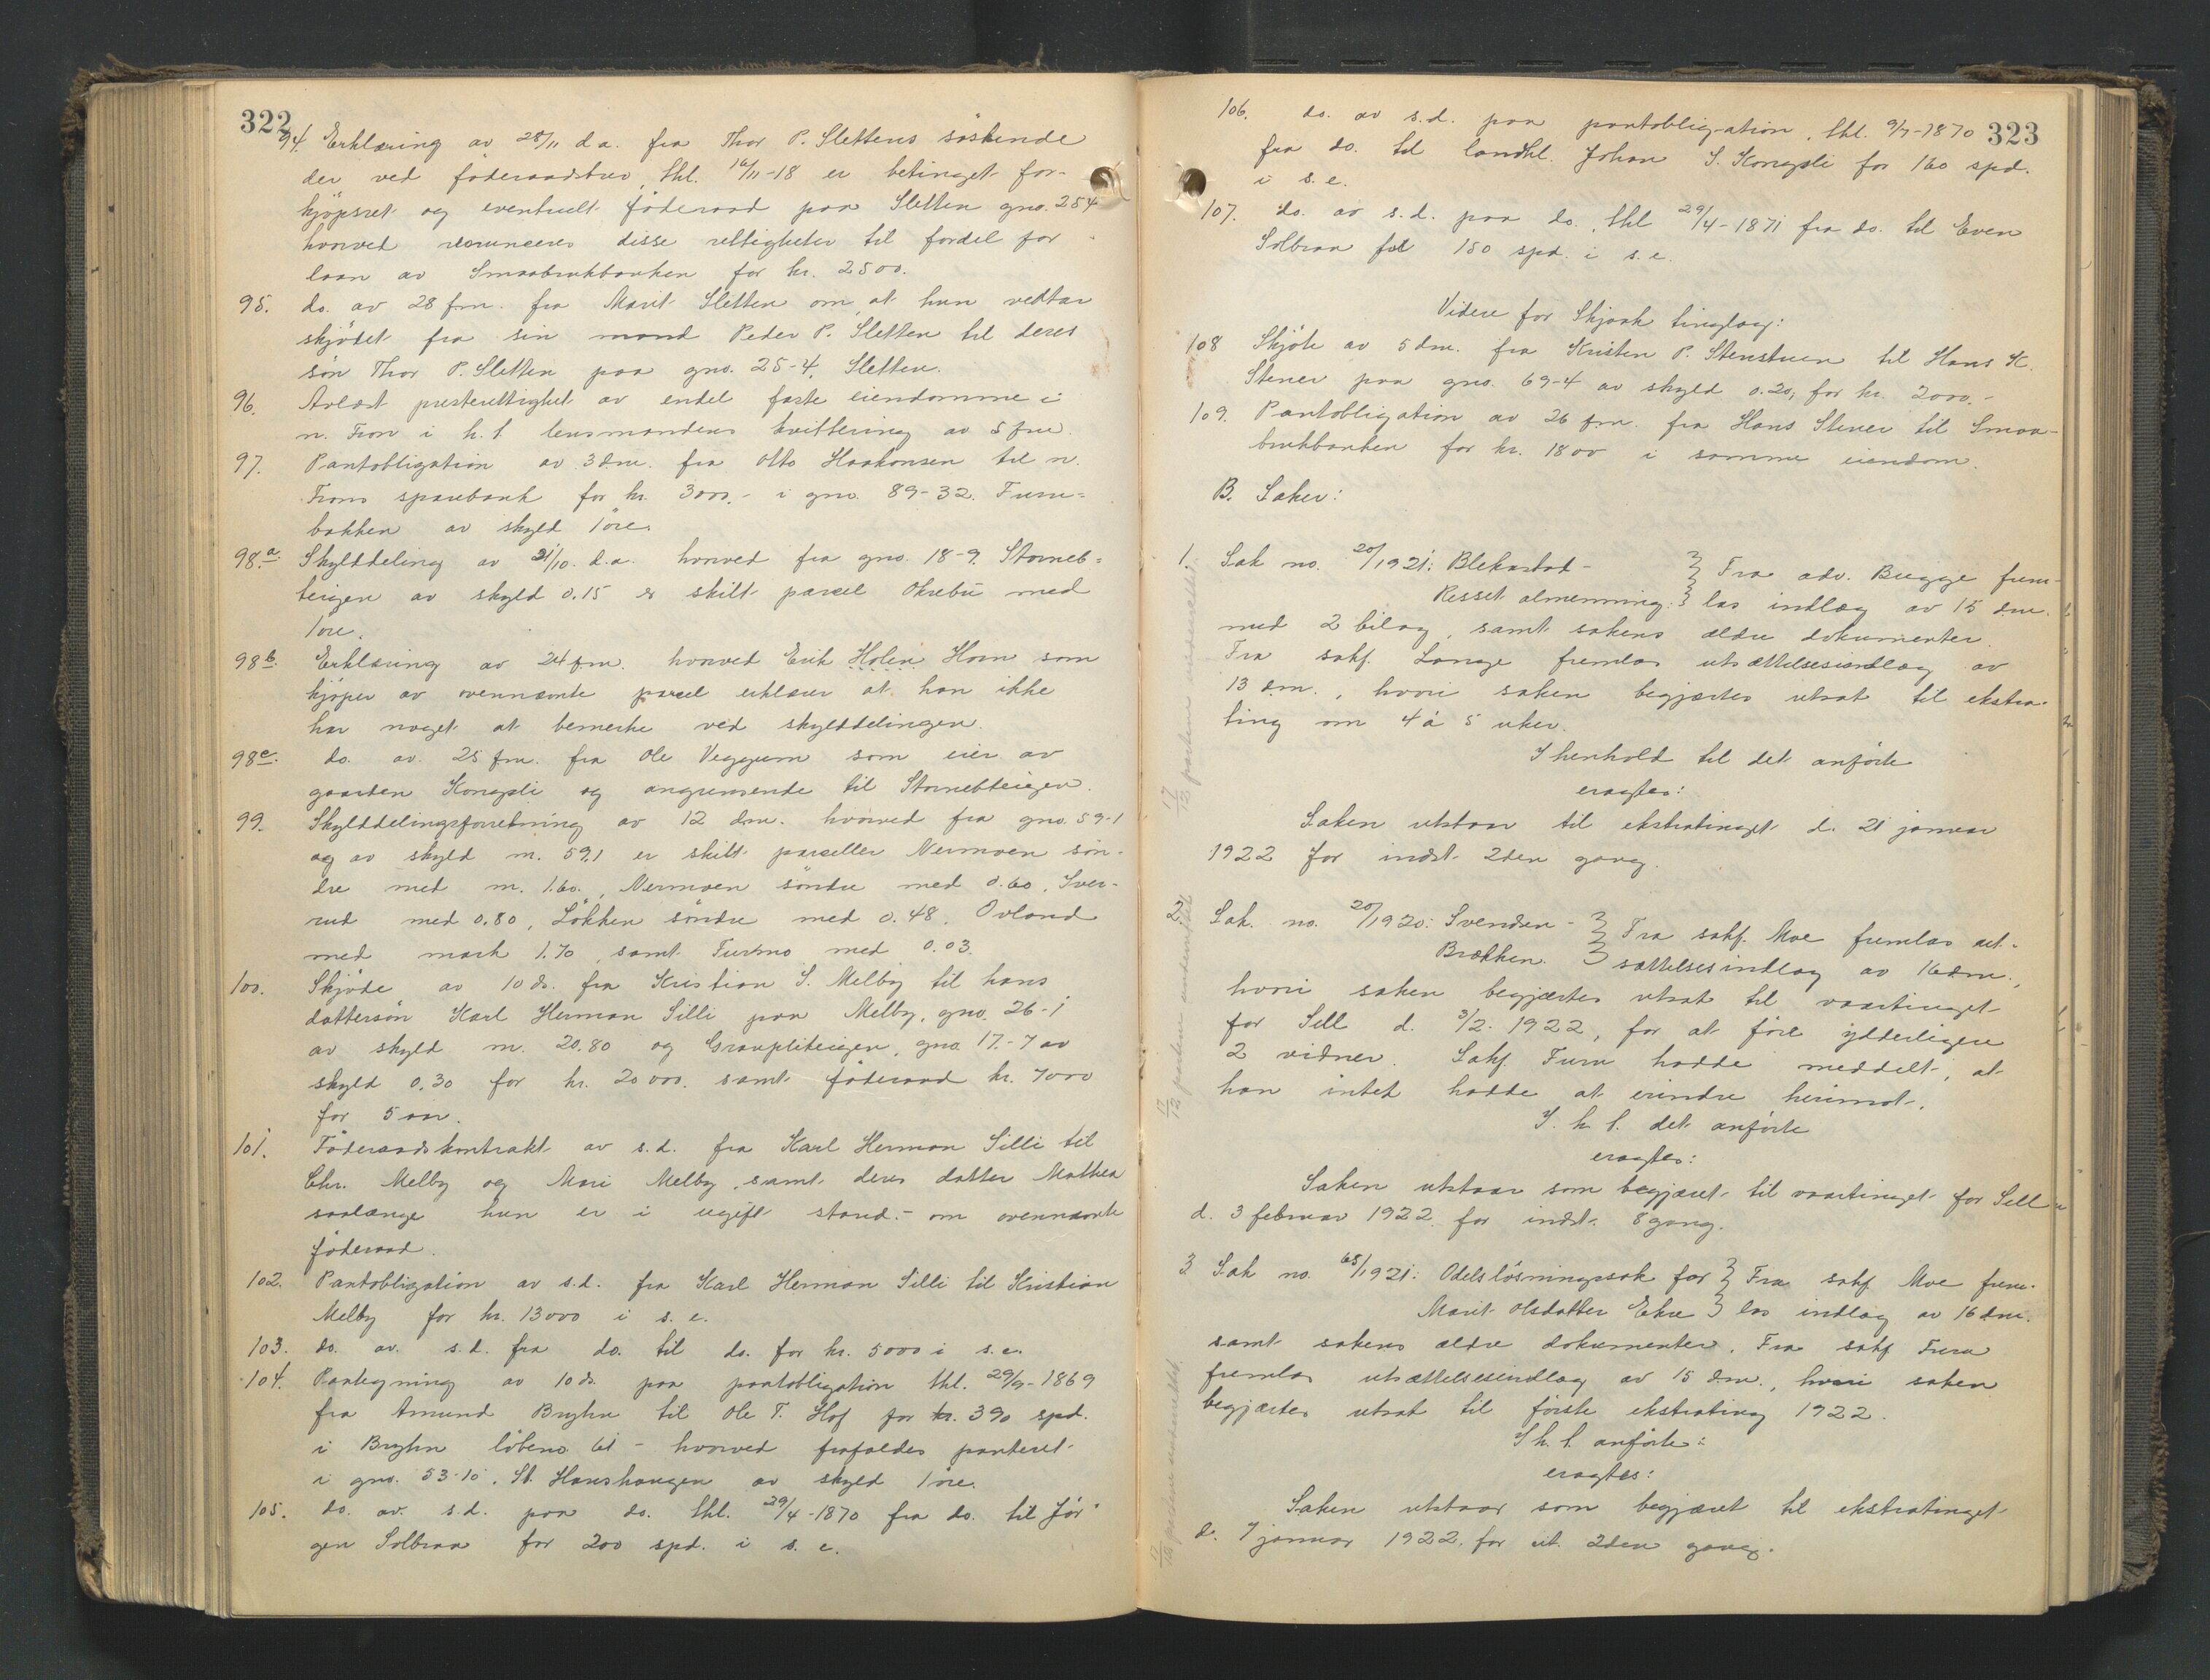 322
94. Erklæring av 28/11 d.a. fra Thor P. Slettens söskende
der ved föderaadsbrev, thl. 16/11-18 er betinget for-
kjöpsret og eventuelt föderaad paa Sletten gno. 254
hvorved renunceres disse rettigheter til fordel for
laan av Smaabrukbanken for kr. 2500.
95. do. av 28 fm. fra Marit Sletten om, at hun vedtar
skjödet fra sin mand Peder P. Sletten til deres
sön Thor P. Sletten paa gno. 25-4, Sletten.
96. Avløst presterettighet av endel faste eiendomme i
n. Fron i h.t. lensmandens kvittering av 5 fm.
97. Pantobligation av 3 dm. fra Otto Haakonsen til n.
Frons sparebank for kr. 3000.- i gno. 89-32. Furu=
bakken av skyld 1 öre.
98.a Skylddeling av 21/10. d.a. hvorved fra gno. 18-9. Storneb=
teigen av skyld 0.15 er skilt parcel Okrebu med
1 öre.
98b. Erklæring av 24 fm. hvorved Erik Holen Horn som
kjöper av ovennævnte parcel erklærer at han ikke
har noget at bemerke ved skylddelingen.
98c. do. av 25 fm. fra Ole Veggum som eier av
gaarden Kongsli og angrænsende til Stornebteigen.
99. Skylddelingsforretning av 12 dm. hvorved fra gno. 59-1
og av skyld m. 5.91 er skilt parceller Nermoen sön-
dre med m. 1.60., Nermoen söndre med 0.60, Sver-
rud med 0.80, Lökken söndre med 0.48. Ovland
med mark 1.70, samt Furumo med 0.03.
100. Skjöde av 10 ds. fra Kristian S. Melby til hans
dattersön Karl Herman Silli paa Melby, gno. 26-1
av skyld m. 20.80 og Graupliteigen, gno. 17-7 av
skyld 0.30 for kr. 20000. samt föderaad kr. 7000
for 5 aar.
101. Föderaadskontrakt av s.d. fra Karl Herman Silli til
Chr. Melby og Mari Melby, samt deres datter Mathea
saalænge hun er i ugift stand.- om ovennævnte
föderaad.
102. Pantobligation av s.d. fra Karl Herman Silli til Kristian
Melby for kr. 13000 i s.e.
103. do. av s.d. fra do. til do. for kr. 5000 i s.e.
104. Paategning av 10 ds. paa pantobligation thl. 29/9-1869
fra Amund Bryhn til Ole T. Hof for kr. 390 spd.
i Bryhn löbeno. 61 - hvorved frafaldes panteret
i gno. 53-10, St. Hanshaugen av skyld 1 öre.
105. do. av s.d. paa do. thl. 29/4-1870 fra do. til Jör-
gen Solbraa for 200 spd. i s.e.
323
106. do. av s.d. paa pantobligation, thl. 9/7-1870
fra do. til landhl. Johan S. Kongsli for 160 spd.
i s.e.
107. do. av s.d. paa do. thl 29/4-1871 fra do. til Even
Solbraa for 150 spd. i s.e.
Videre for Skjaak tinglag:
108 Skjöte av 5 dm. fra Kristen P. Stenstuen til Hans K.
Stener paa gno. 69-4 av skyld 0.20, for kr. 2000.-
109. Pantobligation av 26 fm. fra Hans Stener til Smaa-
brukbanken for kr. 1800 i samme eiendom.
B. Saker:
1. Sak no. 20/1921: Blekastad - } Fra adv. Bugge frem-
Resset almenning. } las indlæg av 15 dm.
med 2 bilag, samt sakens ældre dokumenter.
Fra sakf. Lange fremlas utsættelsesindlæg av
13 dm., hvori saken begjærtes utsat til ekstra-
ting om 4 à 5 uker.
I henhold til det anförte
eragtes:
Saken utstaar til ekstratinget d. 21 januar
1922 for indst. 2den gang.
2. Sak. no. 20/1920: Svendsen - } Fra sakf. Moe fremlas ut-
Brækken. } sættelsesindlæg av 16 dm.,
hvori saken begjærtes utsat til vaartinget
for Sell d. 3/2. 1922, for at före ydderligere
2 vidner. Sakf. Furu hadde meddelt, at
han intet hadde at erindre herimot.
I. h. t. det anförte
eragtes:
Saken utstaar som begjæret til vaartinget for Sell
d. 3 februar 1922 for indst. 8 gang.
3 Sak no. 65/1921: Odelslösningssak for } Fra sakf. Moe frem-
Marit Olsdatter Ekre } las indlæg av 16 dm.
samt sakens ældre dokumenter. Fra sakf Furu
fremlas utsættelsesindlæg av 15 dm., hvori saken
begjærtes utsat til förste ekstrating 1922.
I h.t. anförte:
eragtes:
Saken utstaar som begjæret til ekstratinget
d. 7 januar 1922. for ut. 2den gang.
17/12 partene underrettet.
17/12 partene underrettet
17/12 partene underrettet.